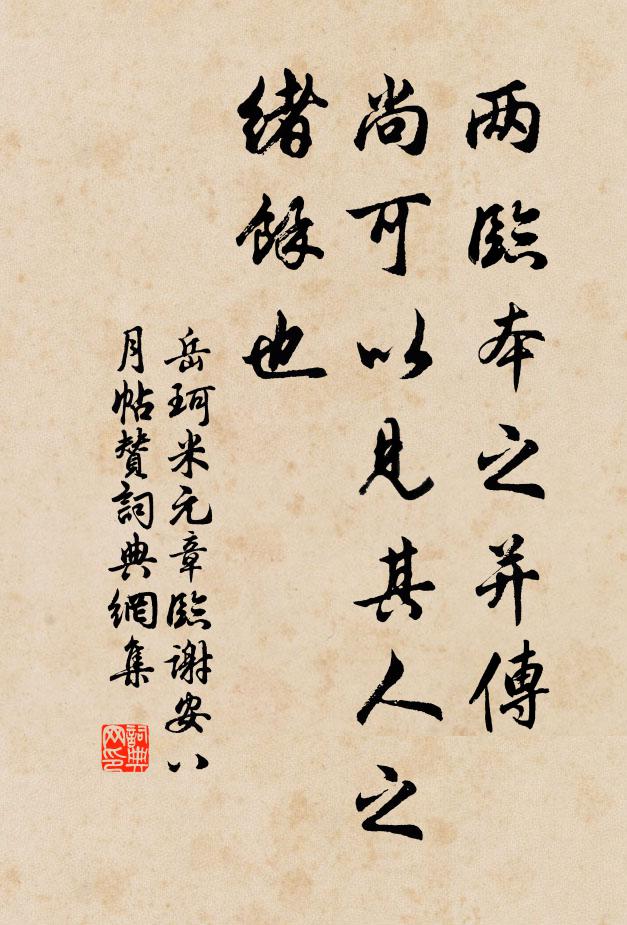 两臨本之并傳
尚可以見其人之
緒餘也
岳珂米元章臨谢安八
月帖賛詞典網集
詞典
网印